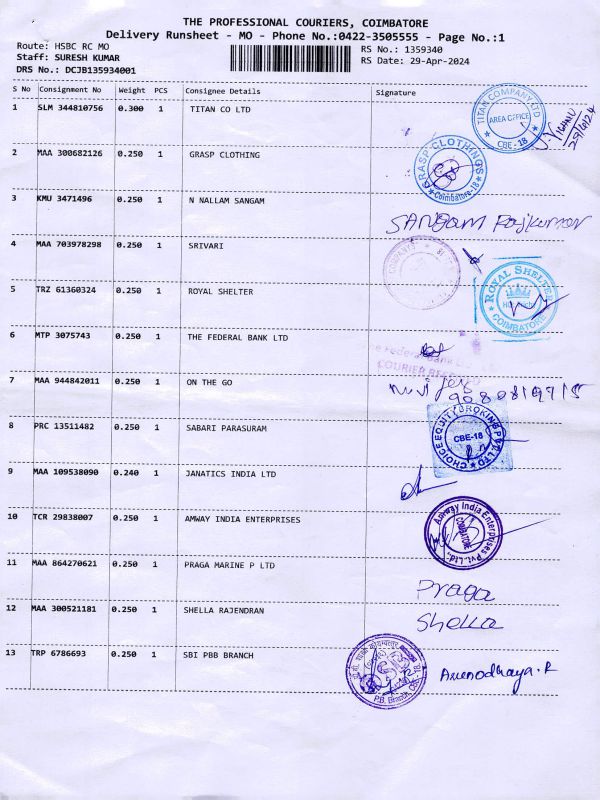 THE PROFESSIONAL COURIERS, COIMBATORE
Delivery Runsheet - MO - Phone No.:0422-3505555 - Page No.:1
Route: HSBC RC MO
RS No.: 1359340
Staff: SURESH KUMAR
RS Date: 29-Apr-2024
DRS No.: DCJB135934001
S No Consignment No Weight PCS Consignee Details Signature
1 SLM 344810756 0.300 1 TITAN CO LTD
TITAN COMPANY LTD AREA OFFICE CBE-18
2 MAA 300682126 0.250 1 GRASP CLOTHING
GRASP CLOTHINGS Coimbatore-18
3 KMU 3471496 0.250 1 N NALLAM SANGAM
SANGAM Rajkumar
4 MAA 703978298 0.250 1 SRIVARI
5 TRZ 61360324 0.250 1 ROYAL SHELTER
ROYAL SHELTER COIMBATORE
6 MTP 3075743 0.250 1 THE FEDERAL BANK LTD
7 MAA 944842011 0.250 1 ON THE GO
8 PRC 13511482 0.250 1 SABARI PARASURAM
CHOICE EQUITY BROKING PVT LTD CBE-18
9 MAA 109538090 0.240 1 JANATICS INDIA LTD
10 TCR 29838007 0.250 1 AMWAY INDIA ENTERPRISES
Amway India Enterprises Pvt. Ltd. COIMBATORE
11 MAA 864270621 0.250 1 PRAGA MARINE P LTD
Praga
12 MAA 300521181 0.250 1 SHELLA RAJENDRAN
Shella
13 TRP 6786693 0.250 1 SBI PBB BRANCH
P.B. Branch, CBE
Arunodhaya.R